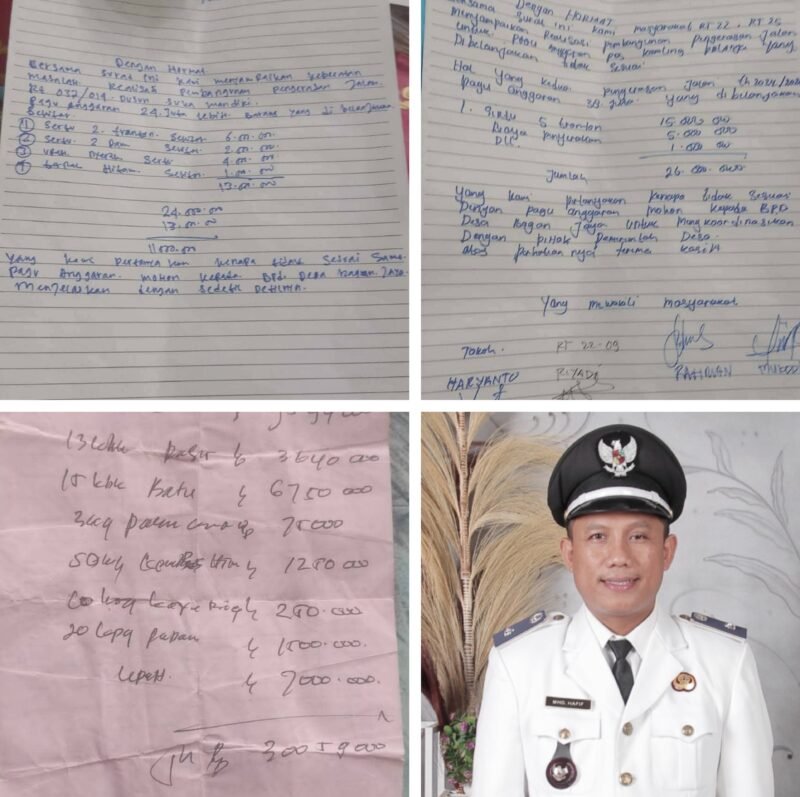 Dengan Hormat
Bersama surat ini kami menyampaikan keberatan
masalah Realisasi pembangunan pengerasan Jalan
Rt 032/014. Dusun Suka mandiri.
Pagu Anggaran 24. Juta lebih. Barang yang di belanjakan
Sekitar.
① Sertu 2. tronton. Sekitar 6.000.00
② Sertu. 2 Dam Sekitar 2.000.00
③ Sertu 4.000.00
④ Hitam. Sekitar 1.000.00
13.000.00
24.000.00
13.000.00
11.000.00
Yang kami pertanyakan kenapa tidak sesuai sama
pagu Anggaran. mohon kepada BPD. Desa Jaya
Menjelaskan dengan sedetil Detilnya.
Dengan HORMAT
Bersama surat ini kami masyarakat RT 22. RT 25
Menyampaikan Realisasi pembangunan pengerasan Jalan
untuk pagu anggaran pos kamling yang
Dibelanjakan tidak sesuai
Hal yang kedua pengerasan Jalan th 2024/2025
pagu anggaran 39. Juta yang dibelanjakan
1. Sirtu 5 tronton 15.000 000
Biaya pengerasan 5.000 000
DLL. 1.000 000
Jumlah 26.000.000
Yang kami pertanyakan kenapa tidak sesuai
Dengan pagu anggaran mohon kepada BPD
Desa Jaya untuk mengkoordinasikan
Dengan pihak pemerintah Desa.
atas perhatian nya terima kasih
Yang mewakili masyarakat
Tokoh. RT 22-09
HARYANTO RIYADI
pasir 3640 000
15 kbk Batu 6750 000
3kg paku 75000
50kg 1250 000
250.000
20 papan 1500.000.
7000.000.
300 59 000
MHD. HAFIF